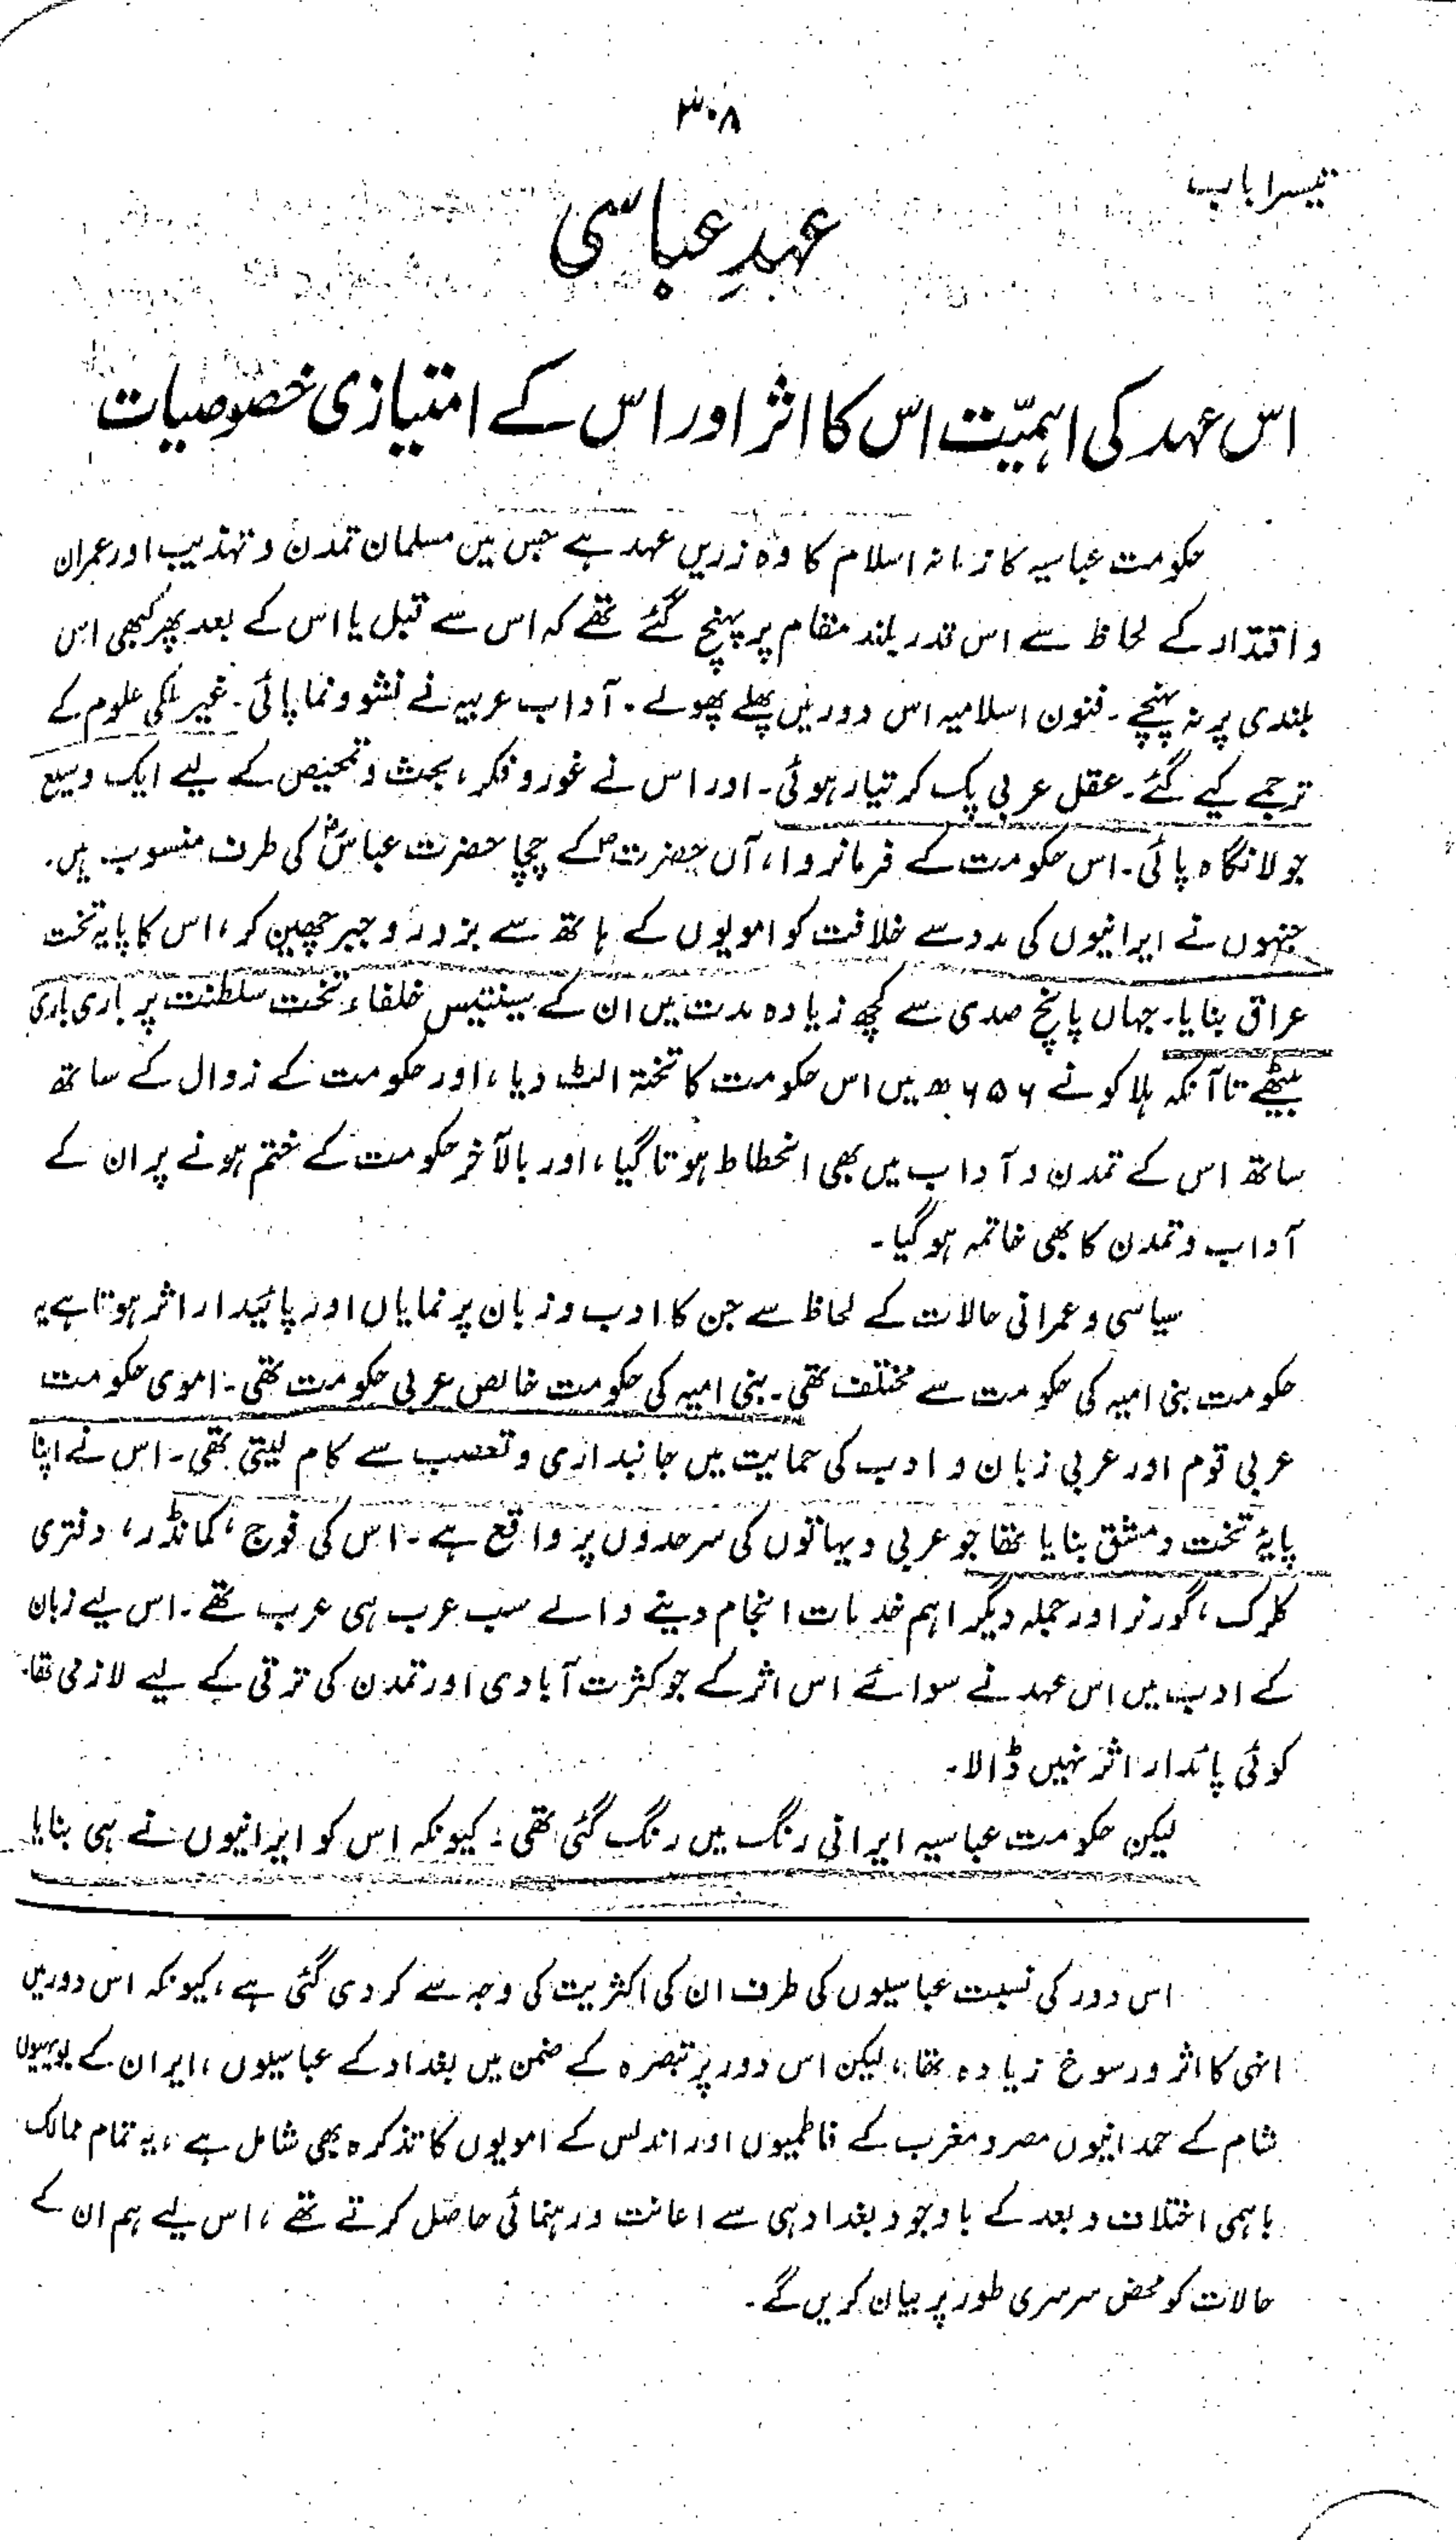 ۳۰۸
تیسرا باب
عہدِ عباسی
اس عہد کی اہمیّت اس کا اثر اور اس کے امتیازی خصوصیات
حکومت عباسیہ کا زمانہ اسلام کا وہ زریں عہد ہے جس میں مسلمان تمدن و تہذیب اور عمران
و اقتدار کے لحاظ سے اس قدر بلند مقام پر پہنچ گئے تھے کہ اس سے قبل یا اس کے بعد پھر کبھی اس
بلندی پر نہ پہنچے۔ فنون اسلامیہ اس دور میں پھلے پھولے۔ آداب عربیہ نے نشو و نما پائی۔ غیر ملکی علوم کے
ترجمے کیے گئے۔ عقل عربی پک کر تیار ہوئی۔ اور اس نے غور و فکر، بحث و تمحیص کے لیے ایک وسیع
جولانگاہ پائی۔ اس حکومت کے فرمانروا، آں حضرتؐ کے چچا حضرت عباسؓ کی طرف منسوب ہیں۔
جنہوں نے ایرانیوں کی مدد سے خلافت کو امویوں کے ہاتھ سے بزور و جبر چھین کر، اس کا پایہ تخت
عراق بنایا۔ جہاں پانچ صدی سے کچھ زیادہ مدت میں ان کے سینتیس خلفاء تخت سلطنت پر باری باری
بیٹھے تا آنکہ ہلاکو نے ۶۵۶ھ میں اس حکومت کا تختہ الٹ دیا، اور حکومت کے زوال کے ساتھ
ساتھ اس کے تمدن و آداب میں بھی انحطاط ہوتا گیا، اور بالآخر حکومت کے ختم ہونے پر ان کے
آداب و تمدن کا بھی خاتمہ ہو گیا۔
سیاسی و عمرانی حالات کے لحاظ سے جن کا ادب و زبان پر نمایاں اور پائیدار اثر ہوتا ہے یہ
حکومت بنی امیہ کی حکومت سے مختلف تھی۔ بنی امیہ کی حکومت خالص عربی حکومت تھی۔ اموی حکومت
عربی قوم اور عربی زبان و ادب کی حمایت میں جانبداری و تعصب سے کام لیتی تھی۔ اس نے اپنا
پایۂ تخت دمشق بنایا تھا جو عربی دیہاتوں کی سرحدوں پر واقع ہے۔ اس کی فوج، کمانڈر، دفتری
کلرک، گورنر اور جملہ دیگر اہم خدمات انجام دینے والے سب عرب ہی عرب تھے۔ اس لیے زبان
کے ادب میں اس عہد نے سوائے اس اثر کے جو کثرت آبادی اور تمدن کی ترقی کے لیے لازمی تھا۔
کوئی پائدار اثر نہیں ڈالا۔
لیکن حکومت عباسیہ ایرانی رنگ میں رنگ گئی تھی۔ کیونکہ اس کو ایرانیوں نے ہی بنایا
اس دور کی نسبت عباسیوں کی طرف ان کی اکثریت کی وجہ سے کر دی گئی ہے، کیونکہ اس دور میں
انہی کا اثر و رسوخ زیادہ تھا، لیکن اس دور پر تبصرہ کے ضمن میں بغداد کے عباسیوں، ایران کے بویہیوں
شام کے حمدانیوں مصر و مغرب کے فاطمیوں اور اندلس کے امویوں کا تذکرہ بھی شامل ہے، یہ تمام ممالک
باہمی اختلاف و بعد کے باوجود بغداد ہی سے اعانت و رہنمائی حاصل کرتے تھے، اس لیے ہم ان کے
حالات کو محض سرسری طور پر بیان کریں گے۔